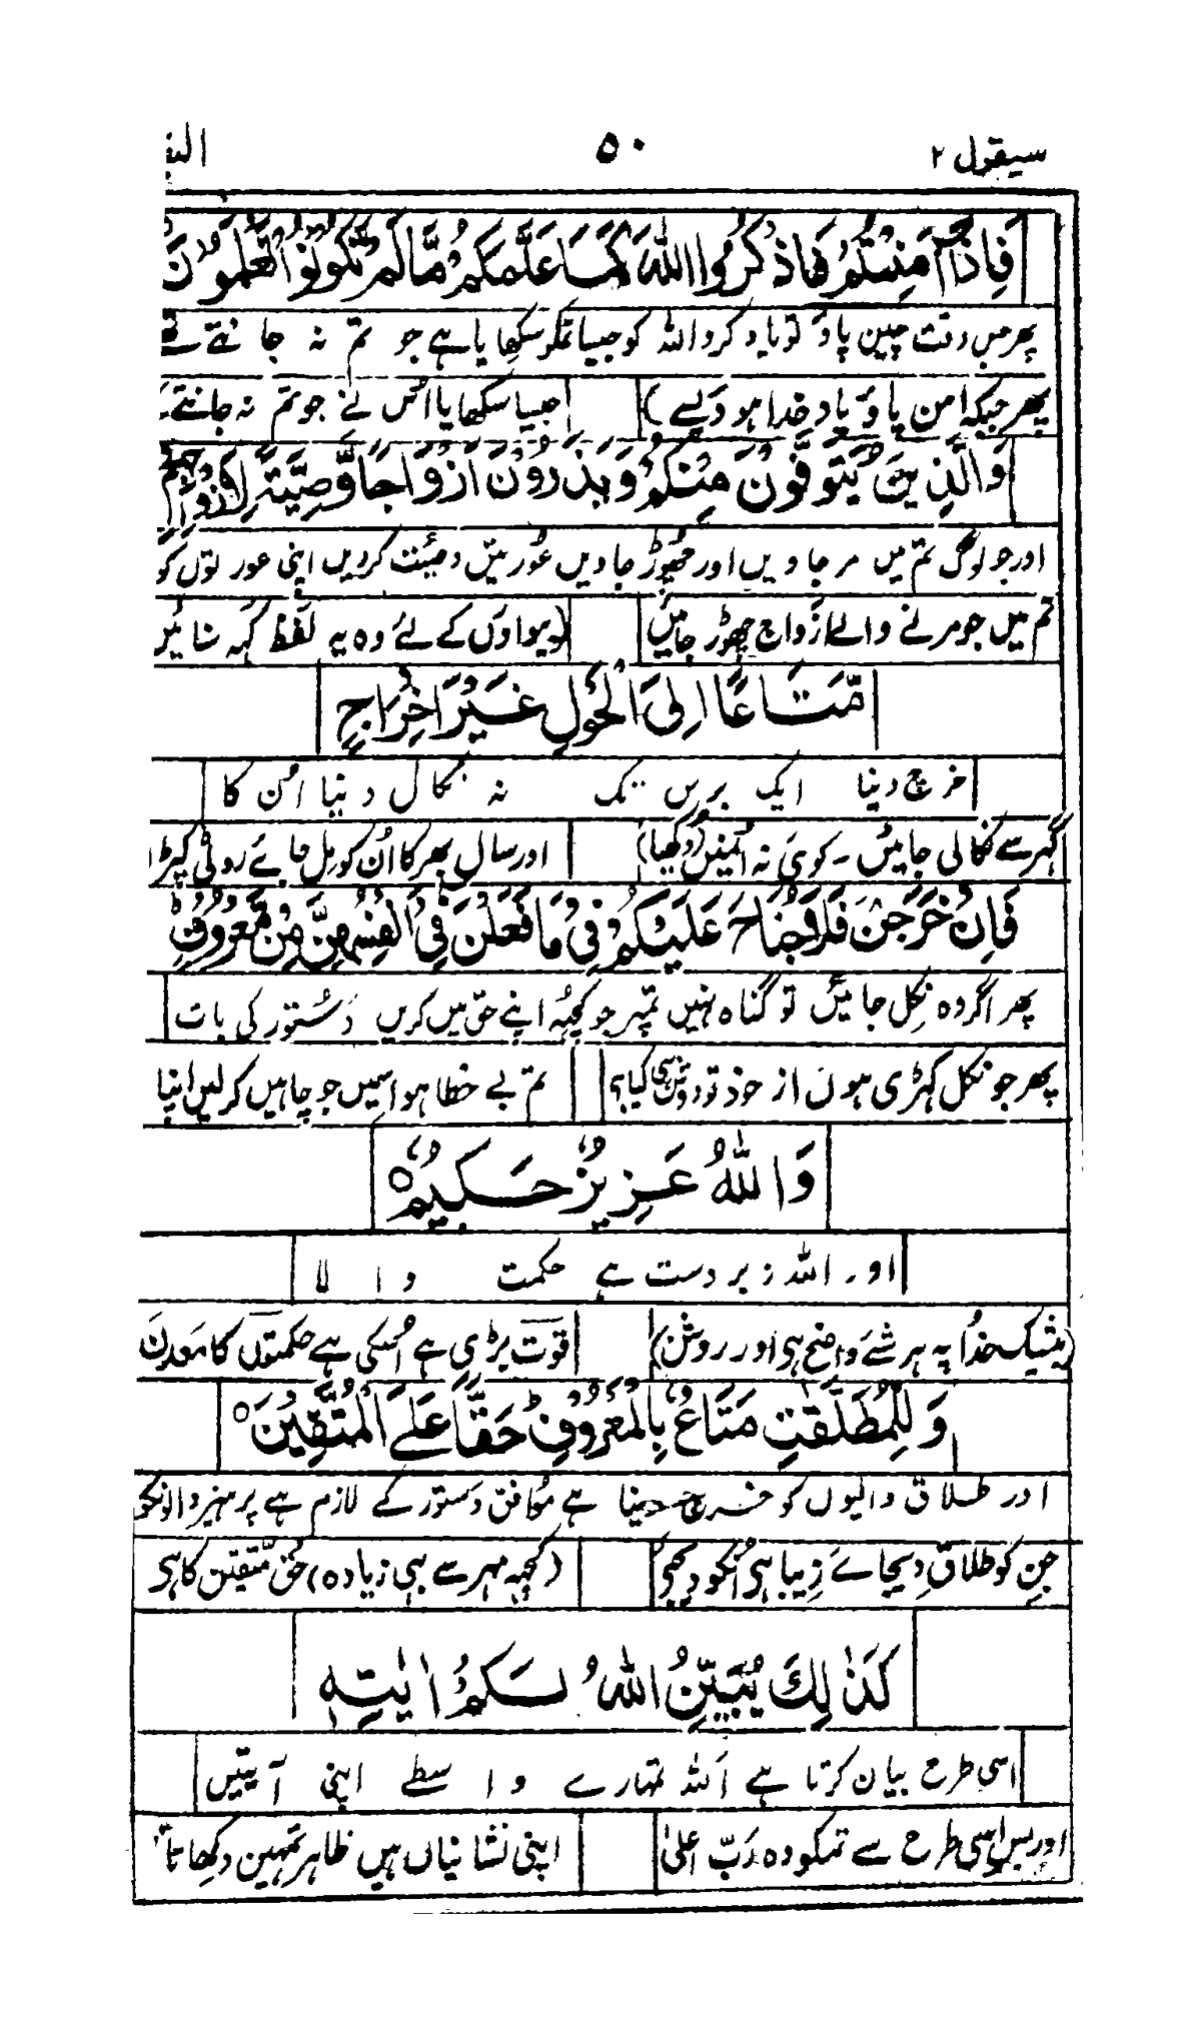 سیقول ۲ ۵۰ البق
فَاِذَآ اَمِنْتُمْ فَاذْكُرُوا اللّٰهَ كَمَا عَلَّمَكُمْ مَّا لَمْ تَكُوْنُوْا تَعْلَمُوْنَ
پھر جس وقت چین پاؤ تو یاد کرو اللہ کو جیسا تمکو سکھایا ہے جو تم نہ جانتے تھے
پھر جبکہ امن پاؤ یاد خدا ہو دلسے) جیسا سکھایا اُس نے جو تم نہ جانتے
وَالَّذِيْنَ يُتَوَفَّوْنَ مِنْكُمْ وَيَذَرُوْنَ اَزْوَاجًا وَّصِيَّةً لِّاَزْوَاجِهِمْ
اور جو لوگ تم میں مر جاویں اور چھوڑ جاویں عورتیں وصیّت کردیں اپنی عورتوں کو
تم میں جو مرنے والے ازواج چھوڑ جائیں (بیواؤں کے لئے وہ یہ لفظ کہہ سنائیں
مَّتَاعًا اِلَى الْحَوْلِ غَيْرَ اِخْرَاجٍ
خرچ دینا ایک برس تک نہ نکال دینا اُن کا
گہر سے نکالی جائیں - کوئی نہ اُنہیں (دکھیا) اور سال بھر کا اُن کو مل جائے روٹی کپڑا
فَاِنْ خَرَجْنَ فَلَا جُنَاحَ عَلَيْكُمْ فِيْ مَا فَعَلْنَ فِيْٓ اَنْفُسِهِنَّ مِنْ مَّعْرُوْفٍ ؕ
پھر اگر وہ نکل جائیں تو گناہ نہیں تمپر جو کچھہ اپنے حق میں کریں دستور کی بات
پھر جو نکل کہڑی ہوں از خود تو کیا؟ تم بے خطا ہو اسمیں جو چاہیں کرلیں اپنا
وَاللّٰهُ عَزِيْزٌ حَكِيْمٌ ۝
اور اللہ زبردست ہے حکمت والا
(بیشک خدا پہ ہر شے واضح ہی اور روشن) قوت بڑی ہے اُسکی ہے حکمتوں کا معدن
وَلِلْمُطَلَّقٰتِ مَتَاعٌۢ بِالْمَعْرُوْفِ ؕ حَقًّا عَلَى الْمُتَّقِيْنَ ۝
اور طلاق والیوں کو خرچ دینا ہے موافق دستور کے لازم ہے پرہیز والونکو
جن کو طلاق دیجائے زیبا ہی اُنکو دیجے (کچھہ مہر سے بہی زیادہ) حق متقین کا ہی
كَذٰلِكَ يُبَيِّنُ اللّٰهُ لَكُمْ اٰيٰتِهٖ
اسی طرح بیان کرتا ہے اللہ تمہارے واسطے اپنی آیتیں
اور بس اِسی طرح سے تمکو وہ رَبّ اعلیٰ اپنی نشانیاں ہیں ظاہر تمہین دکھاتا